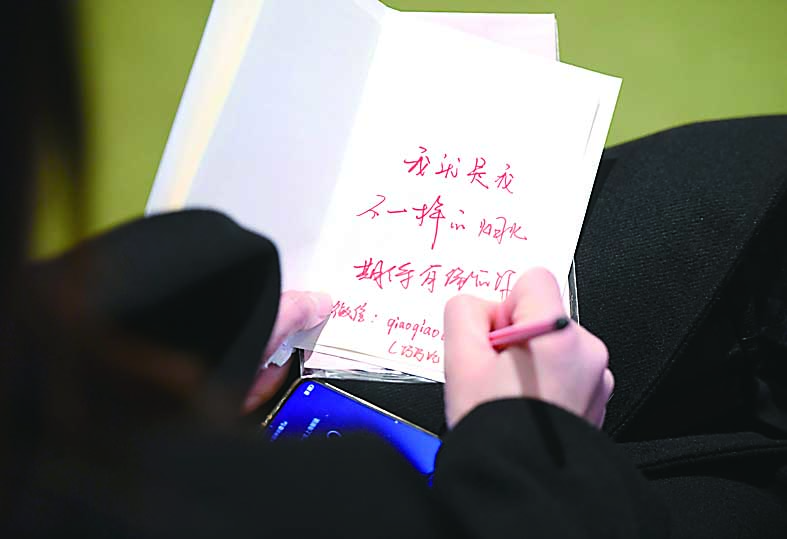 我就是我
不一样的烟火
期待有缘的你
微信：qiaoqiao